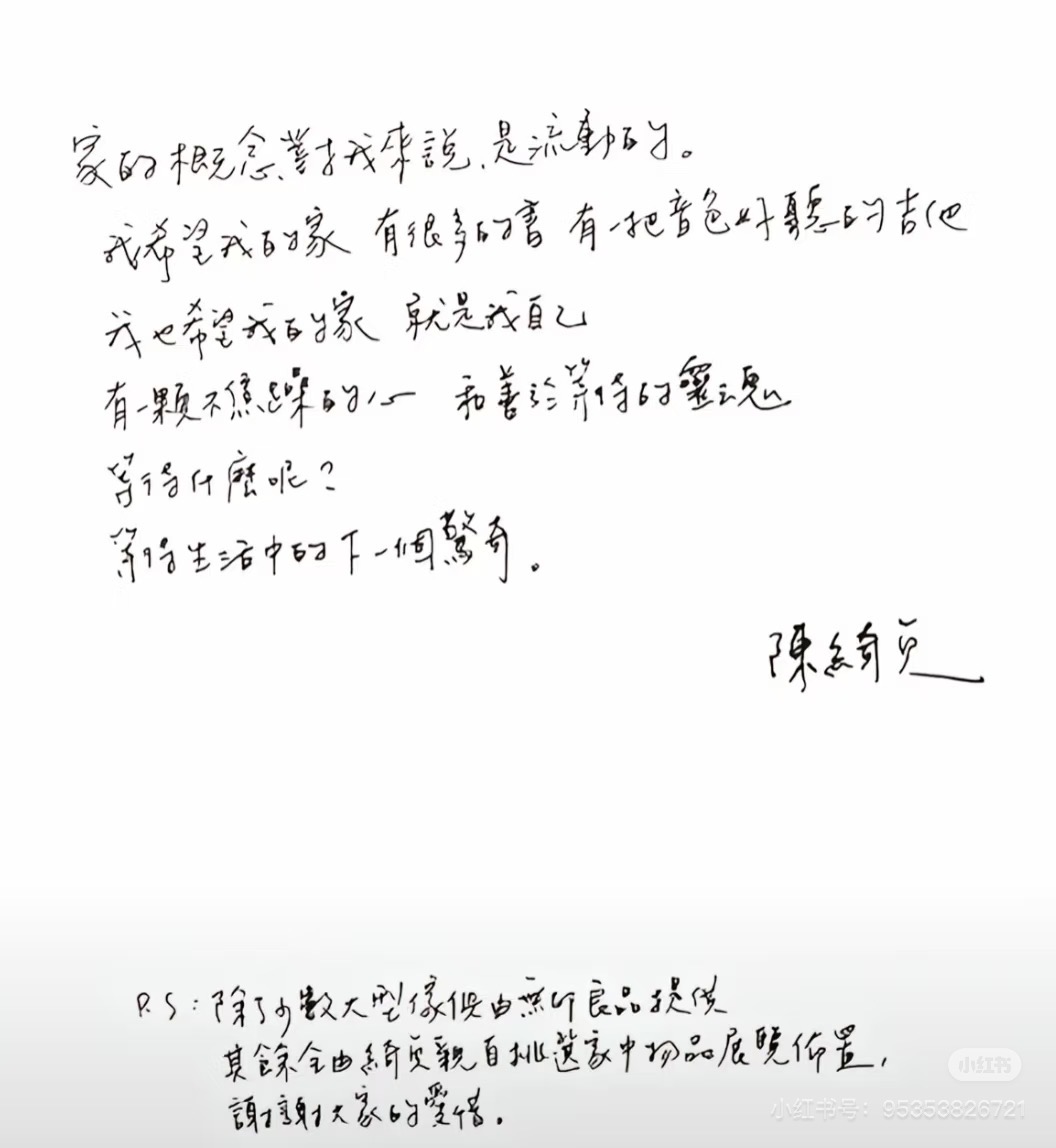 家的概念、對我來說、是流動的。
我希望我的家 有很多的書 有一把音色好聽的吉他
我也希望我的家 就是我自己
有一顆不焦躁的心 和善於等待的靈魂
等待什麼呢?
等待生活中的下一個驚奇。
陳綺貞
P.S:除了少數大型傢俱由無印良品提供
其餘全由綺貞親自挑選家中物品展覽佈置,
謝謝大家的愛惜。
小红书
小红书号:95353826721